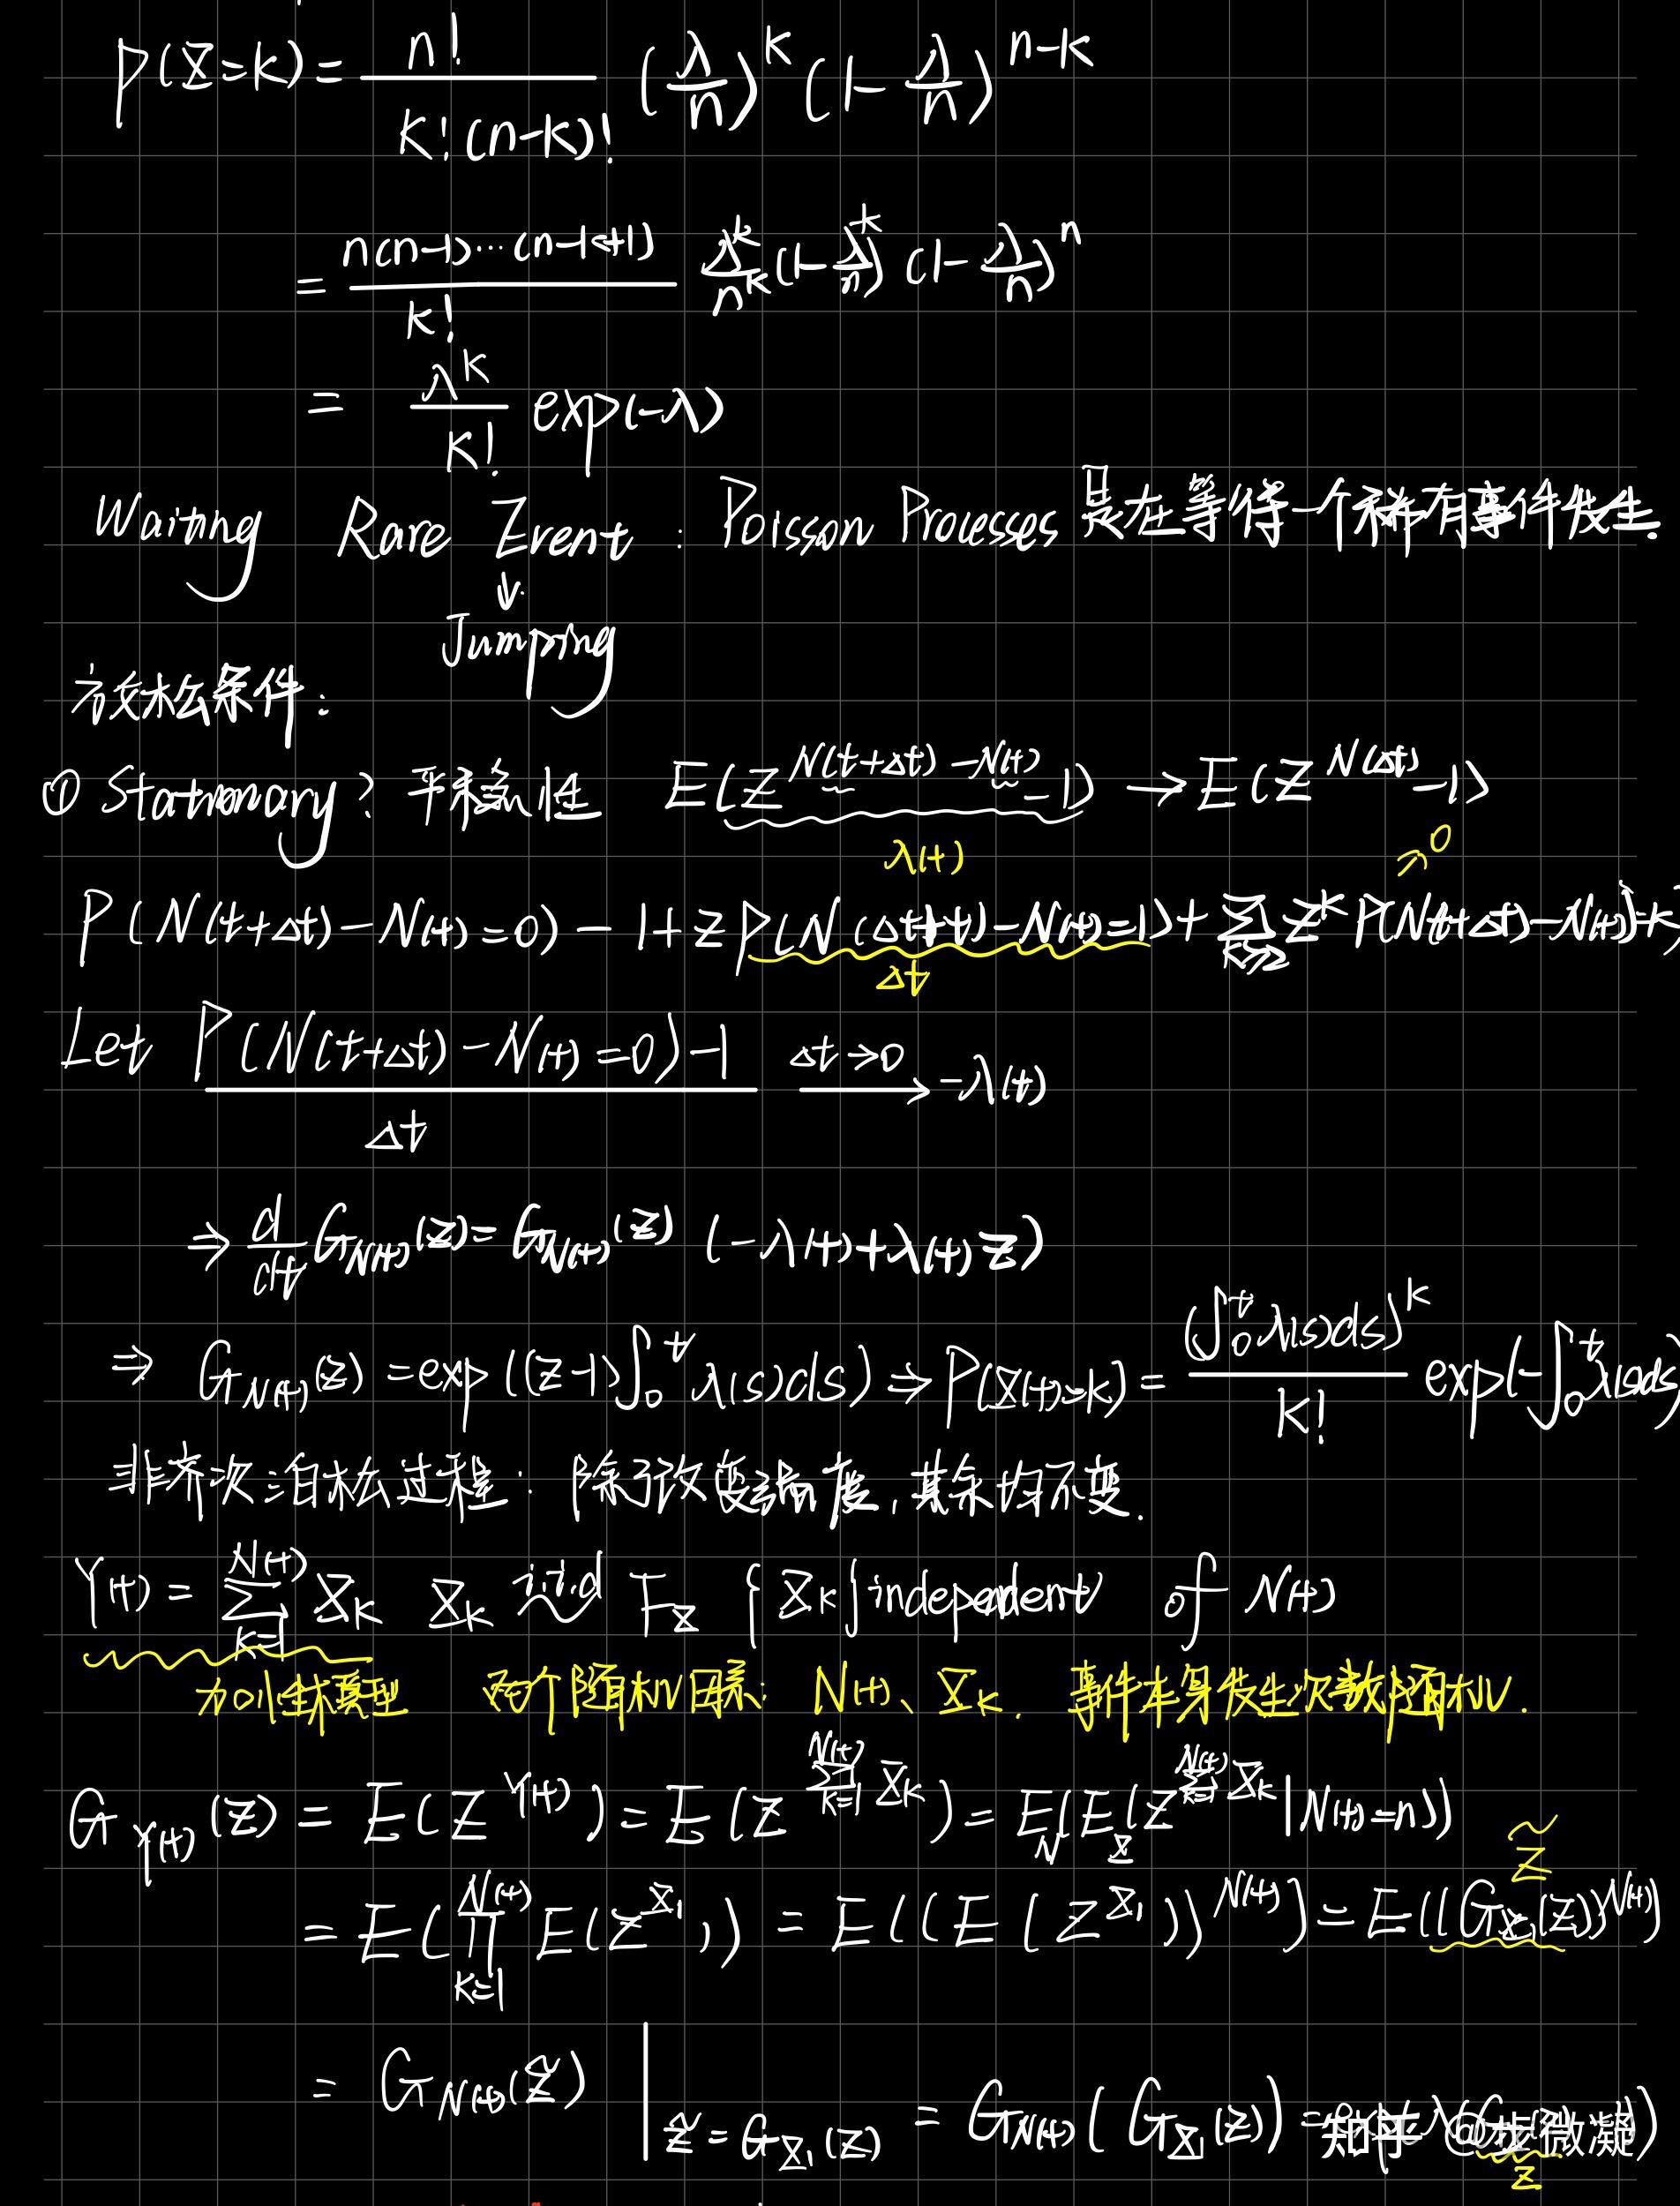 P(X=k) = n!/(k!(n-k)!) (λ/n)^k (1-λ/n)^{n-k}
= n(n-1)···(n-k+1)/k! λ^k/n^k (1-λ/n)^{-k} (1-λ/n)^n
= λ^k/k! exp(-λ)
Waiting Rare Event : Poisson Processes 是在等待一个稀有事件发生.
↓
Jumping
放松条件:
① Stationary? 平稳性 E(z^{N(t+Δt)-N(t)}-1) → E(z^{N(Δt)}-1)
λ(t) → 0
P(N(t+Δt)-N(t)=0) - 1 + zP(N(Δt+t)-N(t)=1) + Σ_{k≥2} z^k P(N(t+Δt)-N(t)=k)
Δt
Let (P(N(t+Δt)-N(t)=0)-1)/Δt Δt→0 → -λ(t)
⇒ d/dt G_{N(t)}(z) = G_{N(t)}(z) (-λ(t)+λ(t)z)
⇒ G_{N(t)}(z) = exp((z-1)∫_0^t λ(s)ds) ⇒ P(X(t)=k) = (∫_0^t λ(s)ds)^k/k! exp(-∫_0^t λ(s)ds)
非齐次泊松过程: 除了改变强度, 其余均不变.
Y(t) = Σ_{k=1}^{N(t)} X_k X_k i.i.d ~ F_X {X_k} independent of N(t)
加小球模型 两个随机因素: N(t)、X_k. 事件本身发生次数随机.
G_{Y(t)}(z) = E(z^{Y(t)}) = E(z^{Σ_{k=1}^{N(t)} X_k}) = E_N(E_X(z^{Σ_{k=1}^{N(t)} X_k}|N(t)=n))
z̃
= E(∏_{k=1}^{N(t)} E(z^{X_1})) = E((E(z^{X_1}))^{N(t)}) = E((G_{X_1}(z))^{N(t)})
= G_{N(t)}(z̃) |_{z̃=G_{X_1}(z)} = G_{N(t)}(G_{X_1}(z)) =
知乎 @步微凝
z